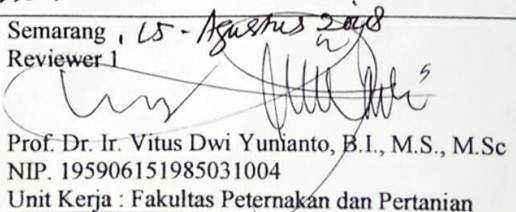 Semarang , 15 - Agustus 2018
Reviewer 1
Prof. Dr. Ir. Vitus Dwi Yunianto, B.I., M.S., M.Sc
NIP. 195906151985031004
Unit Kerja : Fakultas Peternakan dan Pertanian